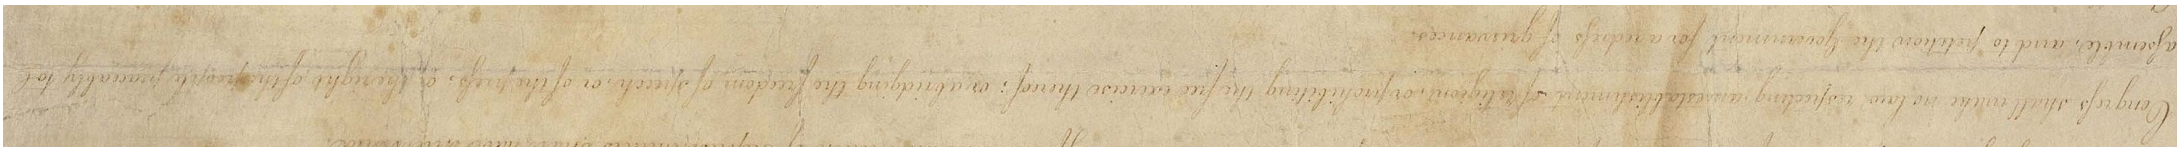 Congreſs shall make no law respecting an establishment of religion, or prohibiting the free exercise thereof; or abridging the freedom of speech, or of the preſs; or the right of the people peaceably to
aſsemble, and to petition the Government for a redreſs of grievances.